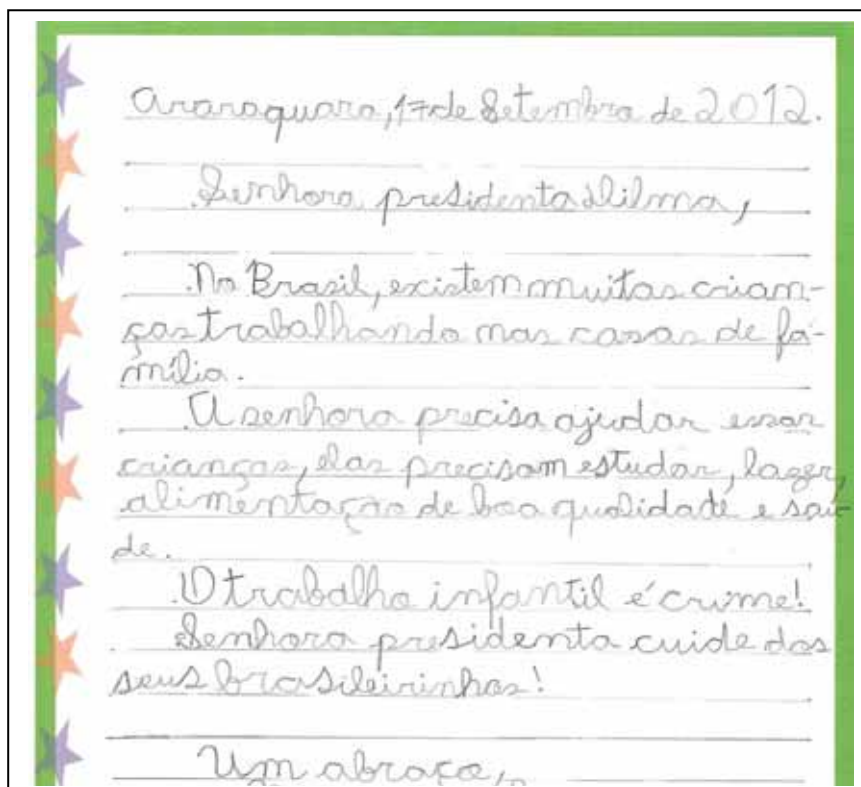 Araraquara, 17 de Setembro de 2012.
Senhora presidenta Dilma,
No Brasil, existem muitas crian-
ças trabalhando nas casas de fa-
mília.
A senhora precisa ajudar essas
crianças, elas precisam estudar, lazer,
alimentação de boa qualidade e saú-
de.
O trabalho infantil é crime!
Senhora presidenta cuide dos
seus brasileirinhos!
Um abraço,